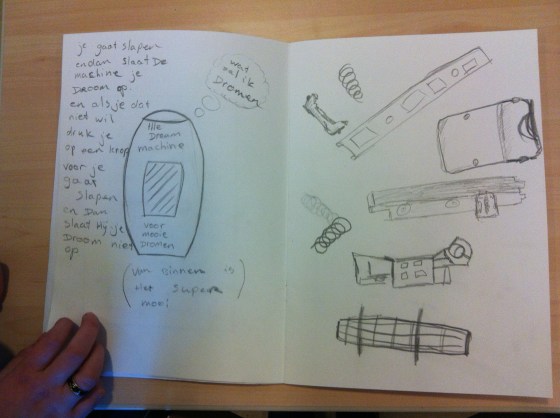 je gaat slapen
en dan slaat De
machine je
Droom op.
en als je dat
niet wil
druk je
op een knop
voor je
gaat
slapen
en Dan
slaat Hij je
Droom niet
op
wat
zal ik
Dromen
Dream
machine
voor
mooie
dromen
(Van binnen is
Het super
mooi)